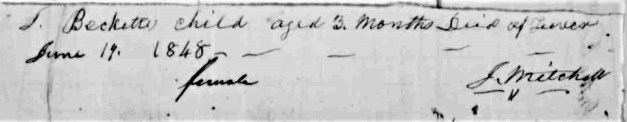 J. Becketts child aged 3. Months Died of Fever.
June 19. 1848 — — — — —
female J. Mitchell